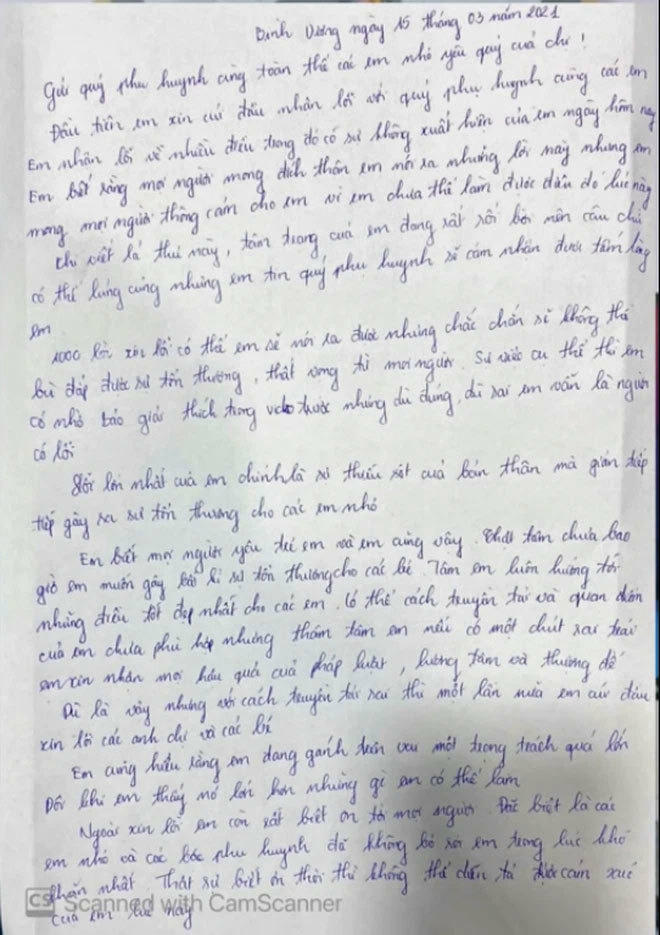 Bình Dương ngày 15 tháng 03 năm 2021
Gửi quý phụ huynh cùng toàn thể các em nhỏ yêu quý của chị!
Đầu tiên em xin cúi đầu nhận lỗi với quý phụ huynh cùng các em
Em nhận lỗi về nhiều điều trong đó có sự không xuất hiện của em ngày hôm nay
Em biết rằng mọi người mong đích thân em nói ra những lời này nhưng em
mong mọi người thông cảm cho em vì em chưa thể làm được điều đó lúc này
Khi viết lá thư này, tâm trạng của em đang rất rối bời nên câu chữ
có thể lủng củng nhưng em tin quý phụ huynh sẽ cảm nhận được tấm lòng
em
1000 lần xin lỗi có thể em sẽ nói ra được nhưng chắc chắn sẽ không thể
bù đắp được sự tổn thương, thất vọng từ mọi người. Sự việc cụ thể thì em
có nhờ báo giải thích trong video trước nhưng dù đúng, dù sai em vẫn là người
có lỗi
Lỗi lớn nhất của em chính là sự thiếu sót của bản thân mà gián tiếp
tiếp gây ra sự tổn thương cho các em nhỏ
Em biết mọi người yêu trẻ em và em cũng vậy. Thật tâm chưa bao
giờ em muốn gây bất kì sự tổn thương cho các bé. Tâm em luôn hướng tới
những điều tốt đẹp nhất cho các em. Có thể cách truyền tải và quan điểm
của em chưa phù hợp nhưng thâm tâm em nếu có một chút sai trái
em xin nhận mọi hậu quả của pháp luật, lương tâm và thượng đế
Dù là vậy nhưng với cách truyền tải sai thì một lần nữa em cúi đầu
xin lỗi các anh chị và các bé
Em cũng hiểu rằng em đang gánh trên vai một trọng trách quá lớn
Đôi khi em thấy nó lớn hơn những gì em có thể làm
Ngoài xin lỗi em còn rất biết ơn tới mọi người. Đặc biệt là các
em nhỏ và các bậc phụ huynh đã không bỏ rơi em trong lúc khó
khăn nhất. Thật sự biết ơn thôi thì không thể diễn tả được cảm xúc
của em lúc này
CS Scanned with CamScanner